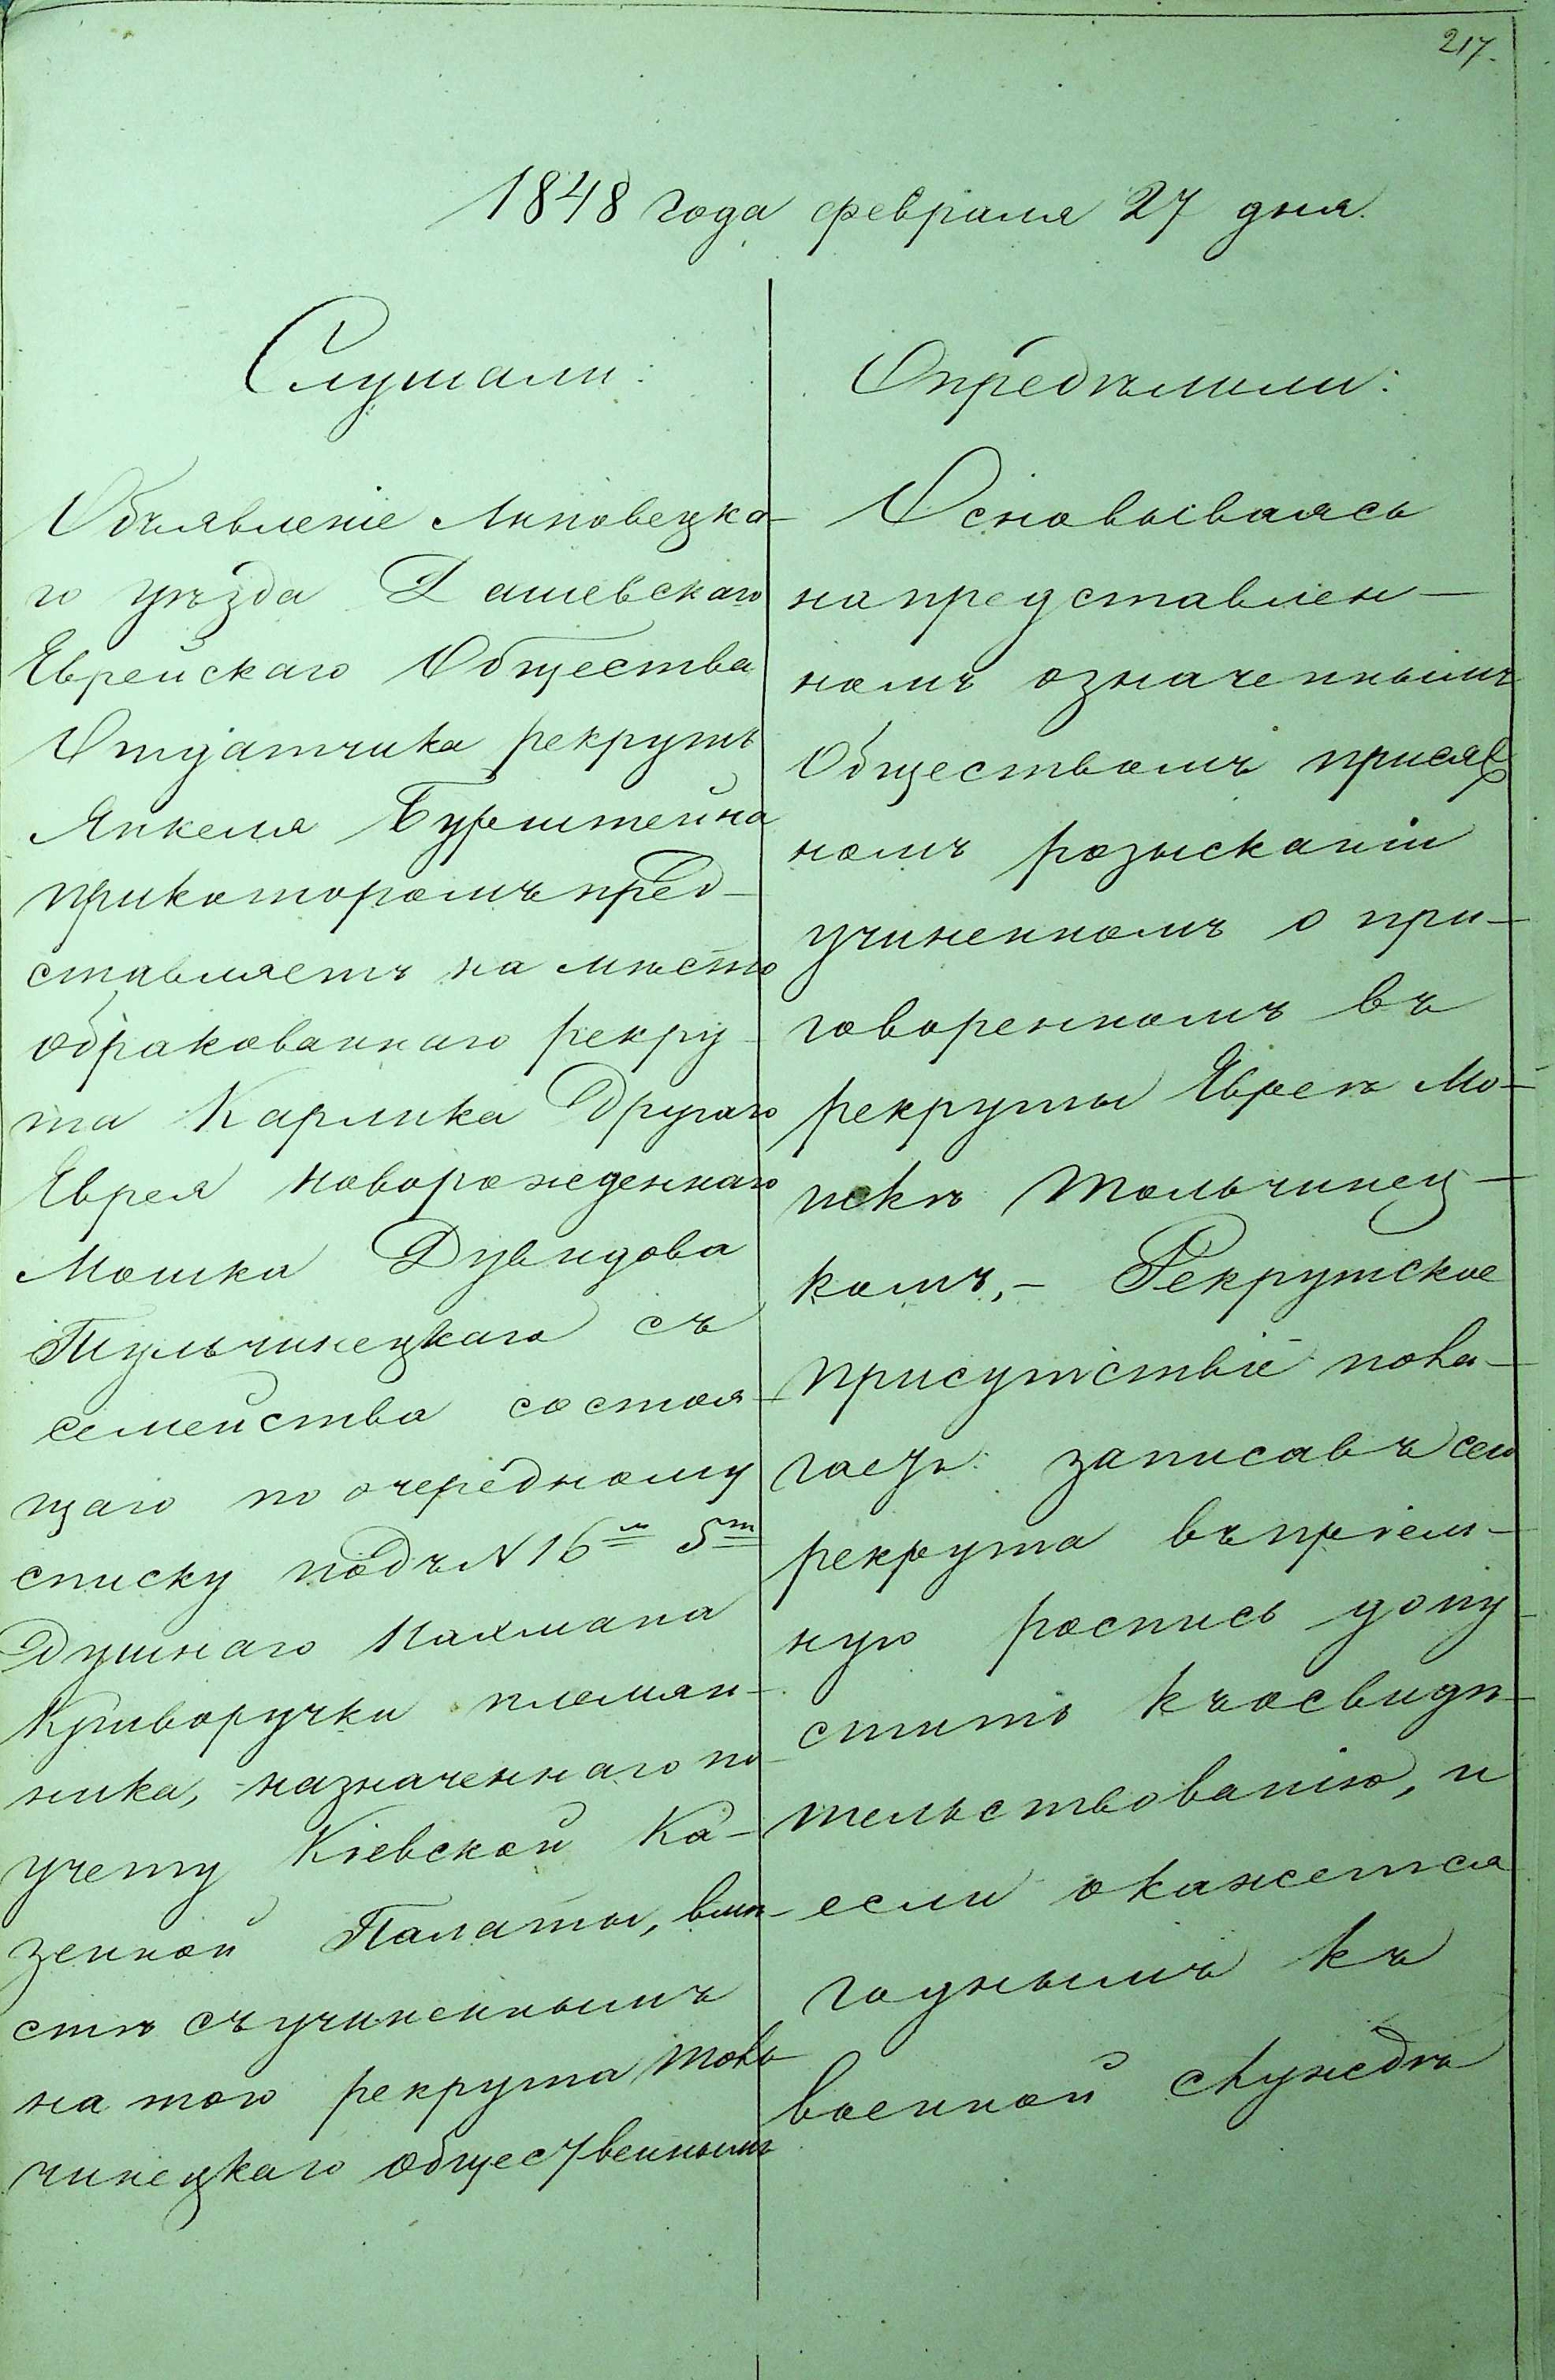 217.
1848 года февраля 27 дня.
Слушали:
Объявленіе Липовецка-
го уѣзда Дашевскаго
Еврейскаго Общества
Отдатчика рекрутъ
Янкеля Бурштейна
прикоторомъ пред-
ставляетъ на мѣсто
обракованнаго рекру-
та Карлика Другаго
Еврея новорожденнаго
Мошка Дувидова
Тульчинецкаго съ
семейства состоя-
щаго по очередному
списку подъ N 16м 5т
Душнаго Нахмана
Криворучки племян-
ника, назначеннаго по
учету Кіевской Ка-
зенной Палаты, вмѣ-
стѣ съучиненнымъ
на того рекрута Толь-
чинецкаго общественнымъ
Опредѣлили:
Основываясь
напредставлен-
номъ означеннымъ
Обществомъ присяж
номъ розысканіи
учиненномъ о при-
говоренномъ въ
рекруты Еврее Мо-
шкѣ Тольчинец-
комъ,- Рекрутское
присутствіе пола-
гаетъ: записавъ сего
рекрута въпріем-
ную роспись допу-
стить къосвидѣ-
тельствованію, и
если окажется
годнымъ къ
военной службѣ